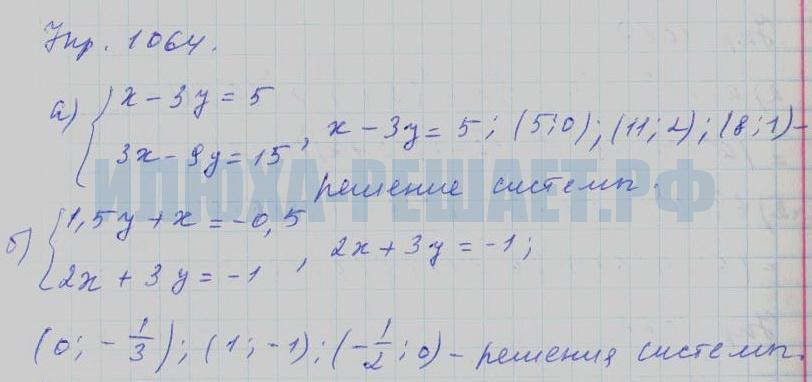 Упр. 1064.
а) { x - 3y = 5
3x - 9y = 15 , x - 3y = 5; (5; 0); (11; 2); (8; 1) -
решение системы.
ИЛЮХА-РЕШАЕТ.РФ
б) { 1,5y + x = -0,5
2x + 3y = -1 , 2x + 3y = -1;
(0; -1/3); (1; -1); (-1/2; 0) - решения системы.